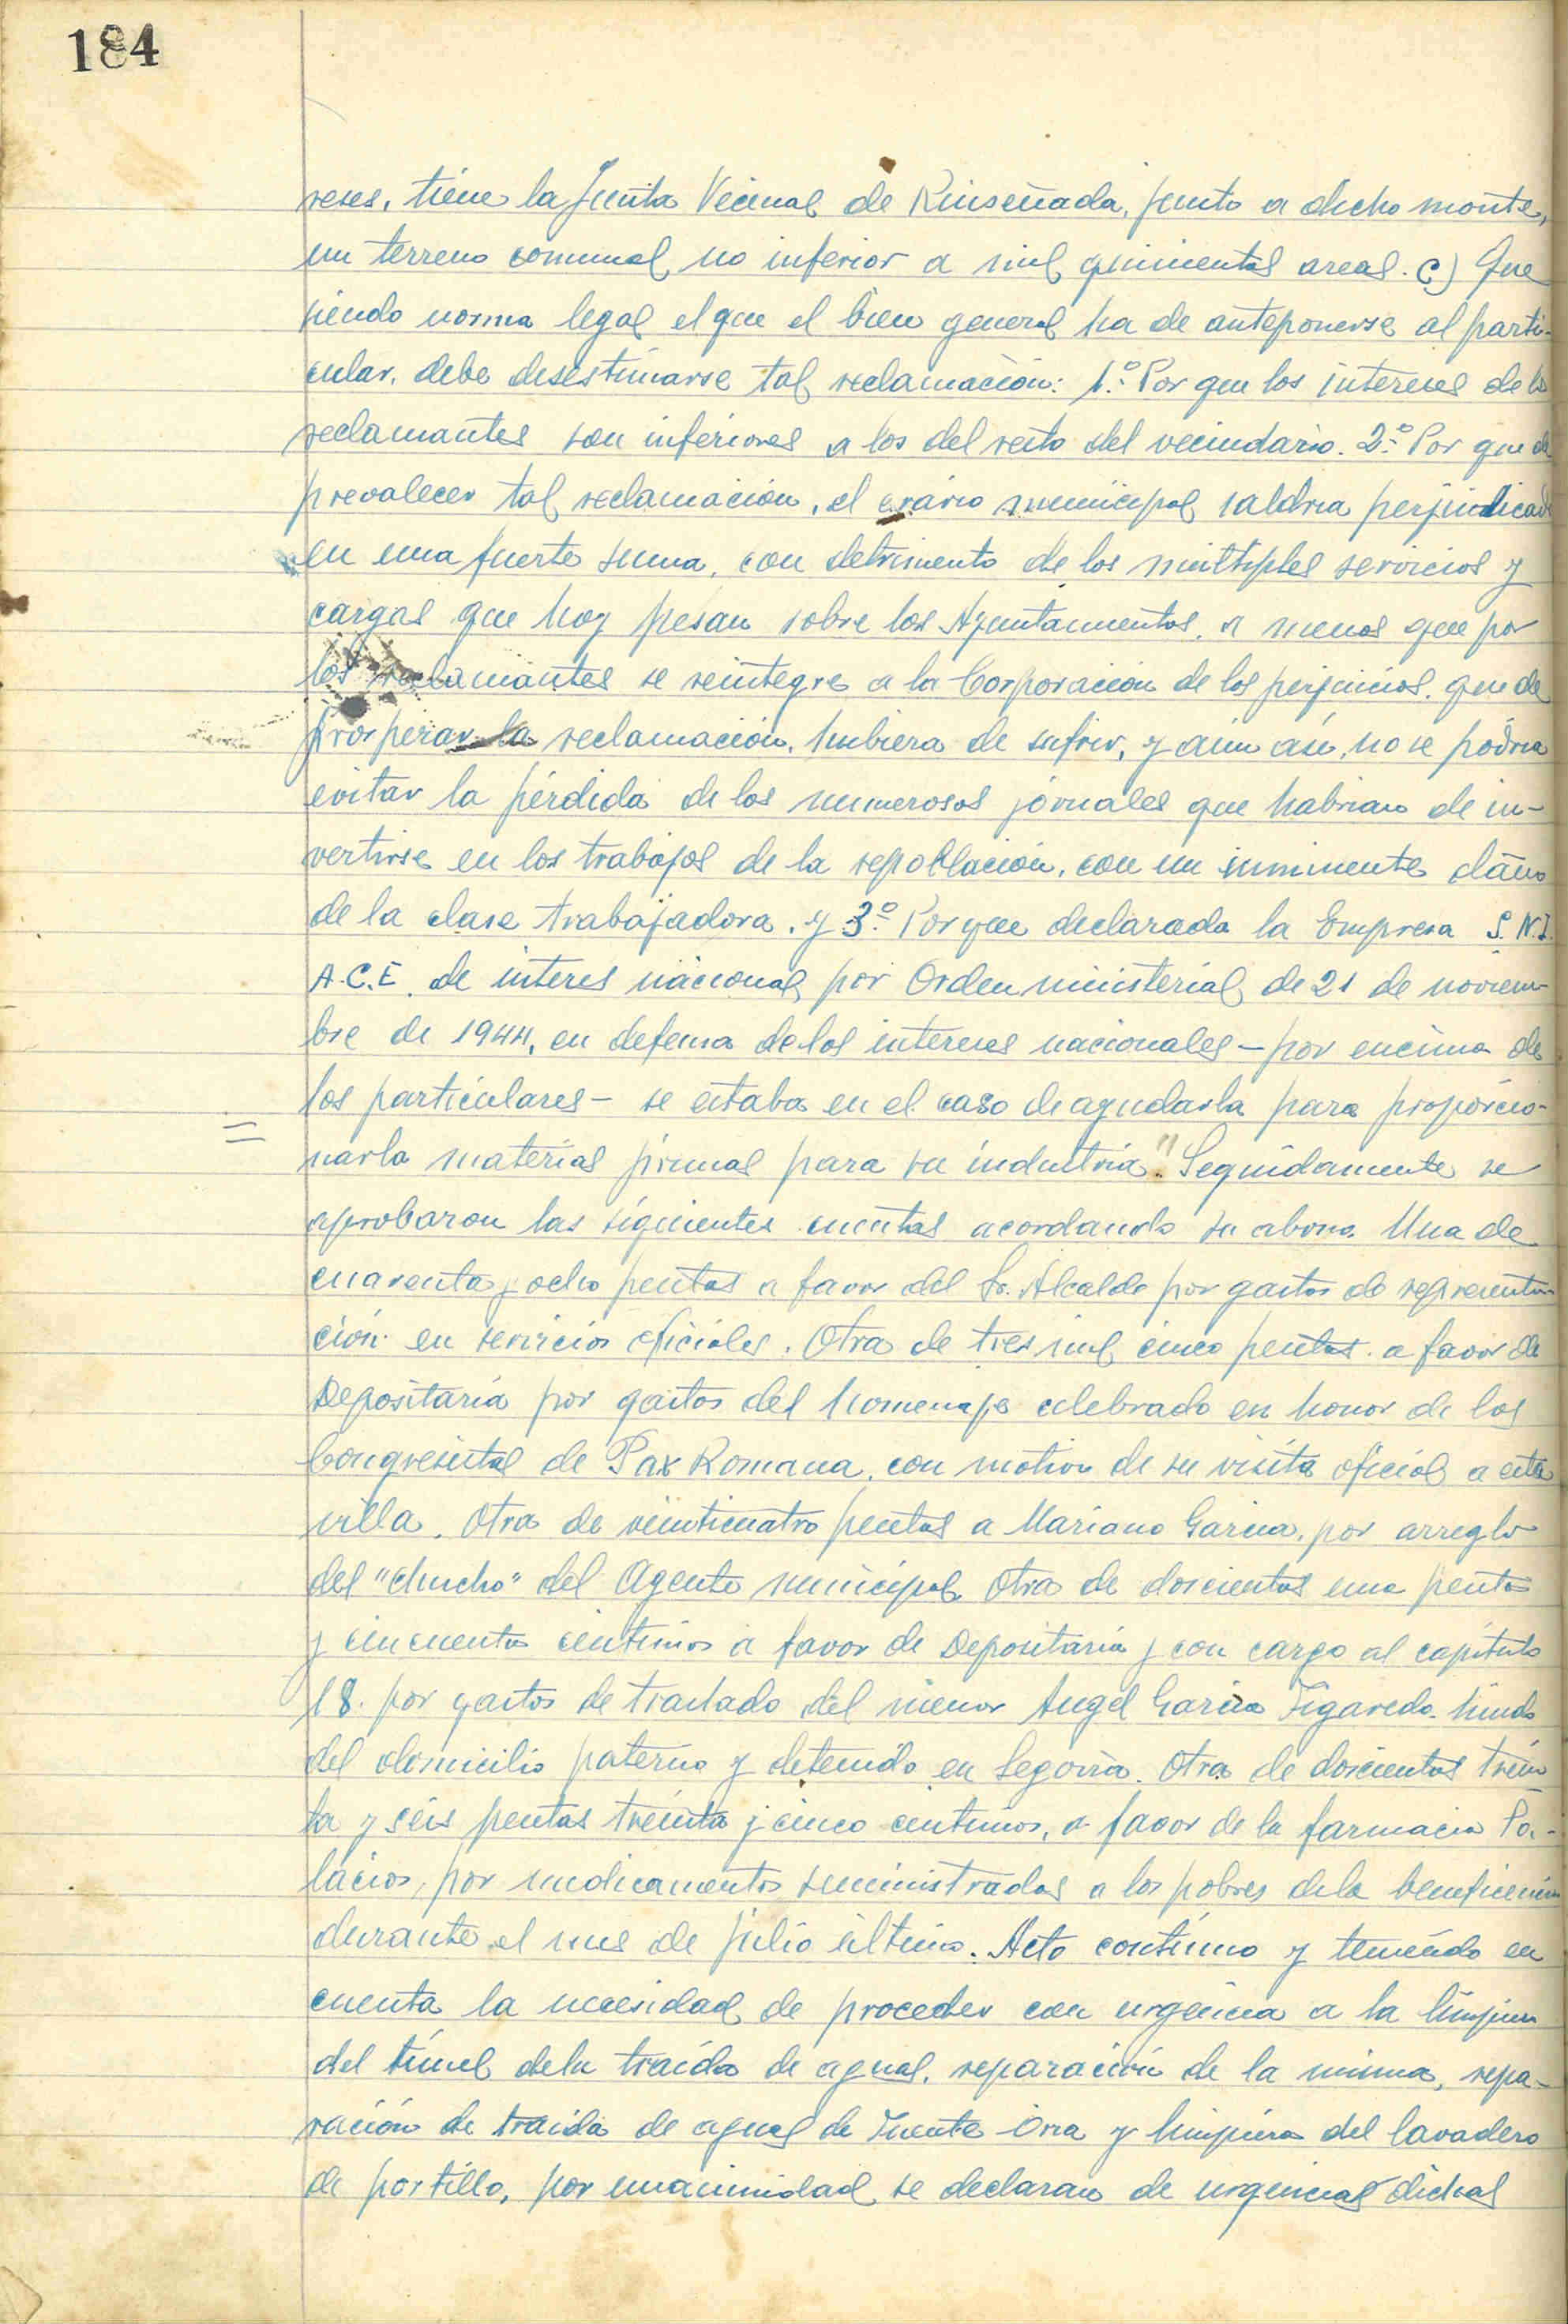 184
reses, tiene la Junta Vecinal de Rinseñada, junto a dicho monte,
un terreno comunal no inferior a mil quinientas areas. C) Que
siendo norma legal el que el bien general ha de anteponerse al parti-
cular, debe desestimarse tal reclamación: 1.º Por que los intereses de los
reclamantes son inferiores a los del resto del vecindario. 2.º Por que de
prevalecer tal reclamación, el erário municipal saldria perjudicado
en una fuerte suma, con detrimento de los multiples servicios y
cargas que hoy pesan sobre los Ayuntamientos, a menos que por
los reclamantes se reintegre a la Corporación de los perjuicios, que de
prosperar la reclamación, hubiera de sufrir, y aún asi, no se podria
evitar la pérdida de los numerosos jornales que habrian de in-
vertirse en los trabajos de la repoblación, con un inminente daño
de la clase trabajadora, y 3.º Porque declarada la Empresa S.N.I.
A.C.E. de interes nacional por Orden ministerial de 21 de noviem-
bre de 1944, en defensa de los intereses nacionales - por encima de
los particulares - se estaba en el caso de ayudarla para proporcio-
narla materias primas para su industria". Seguidamente se
aprobaron las siguientes cuentas acordando su abono. Una de
cuarenta y ocho pesetas a favor del Sr. Alcalde por gastos de representa-
ción en servicios oficiales. Otra de tres mil cinco pesetas a favor de
Depositaria por gastos del homenaje celebrado en honor de los
Congresistas de Pax Romana, con motivo de su visita oficial a esta
villa. Otra de veinticuatro pesetas a Mariano Garcia, por arreglo
del "chucho" del Agente municipal. Otra de doscientas una pesetas
y cincuenta centimos a favor de Depositaria y con cargo al capitulo
18. por gastos de traslado del menor Angel Garcia Figaredo, huido
del domicilio paterno y detenido en Segovia. Otra de doscientas trein
ta y seis pesetas treinta y cinco centimos, a favor de la farmacia Pa-
lacios, por medicamentos suministrados a los pobres de la beneficencia
durante el mes de julio último. Acto contínuo y teniendo en
cuenta la necesidad de proceder con urgencia a la limpieza
del túnel de la traída de aguas, reparación de la misma, repa-
ración de traida de aguas de Fuente y limpieza del lavadero
de portillo, por unanimidad se declaran de urgencias dichas